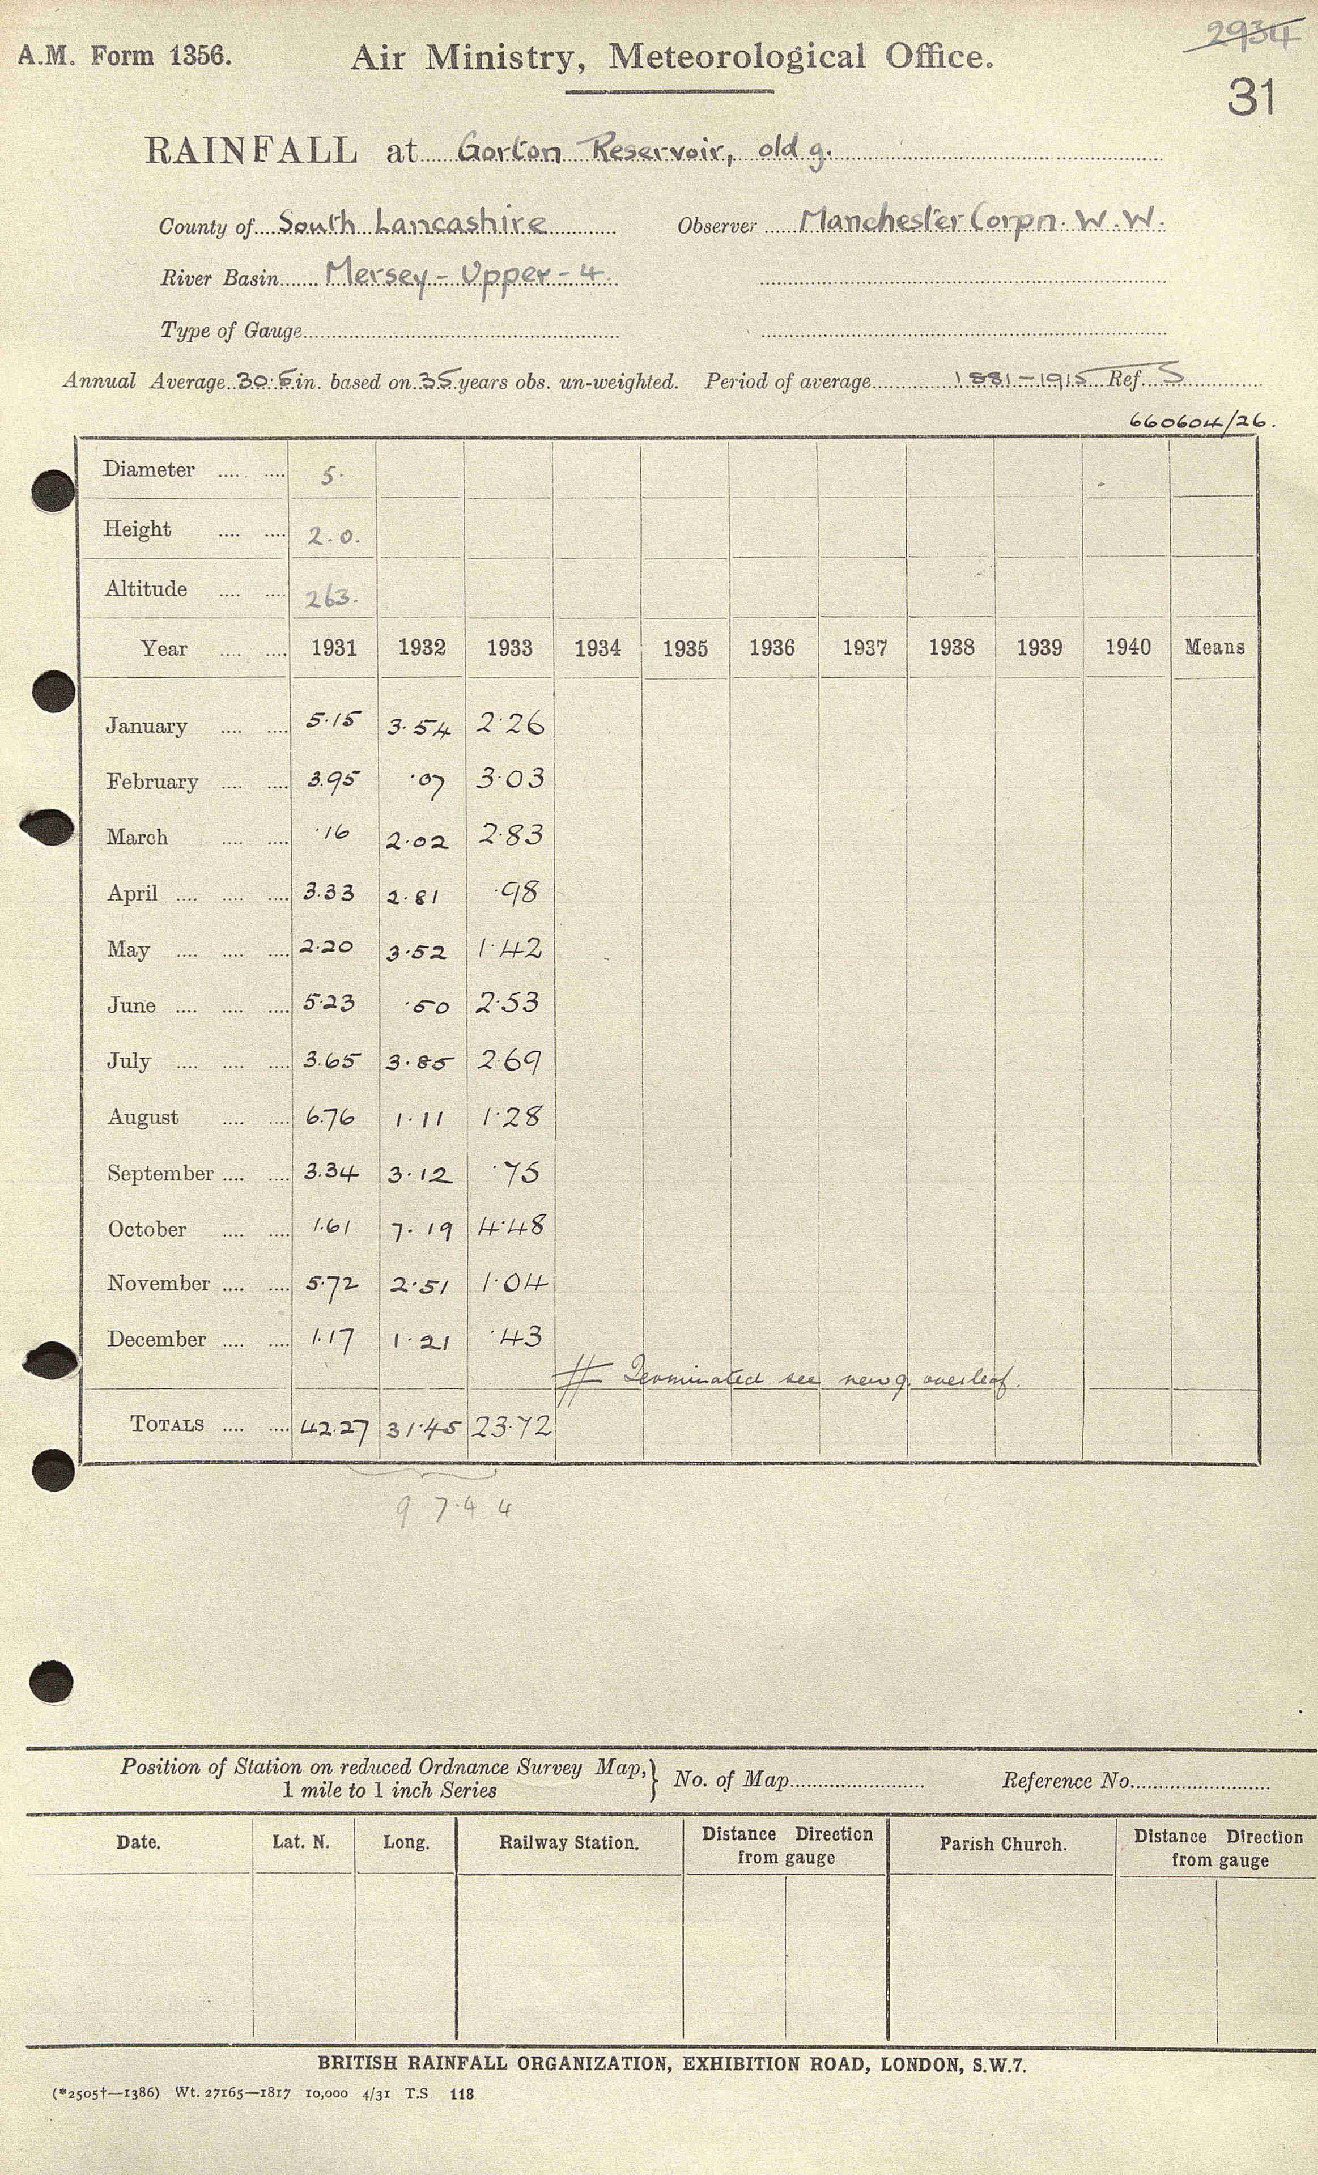 2934
A.M. Form 1356. Air Ministry, Meteorological Office.
31
RAINFALL at Gorton Reservoir, old g.
County of South Lancashire Observer Manchester Corpn. W.W.
River Basin Mersey - Upper - 4.
Type of Gauge
Annual Average 30.5 in. based on 35 years obs. un-weighted. Period of average 1881-1915 Ref. S
660604/26.
Diameter .... .... 5.
Height .... .... 2.0.
Altitude .... .... 263.
Year .... .... 1931 1932 1933 1934 1935 1936 1937 1938 1939 1940 Means
January .... .... 5.15 3.54 2.26
February .... .... 3.95 .07 3.03
March .... .... .16 2.02 2.83
April .... .... .... 3.33 2.81 .98
May .... .... .... 2.20 3.52 1.42
June .... .... .... 5.23 .50 2.53
July .... .... .... 3.65 3.85 2.69
August .... .... 6.76 1.11 1.28
September .... .... 3.34 3.12 .75
October .... .... 1.61 7.19 4.48
November .... .... 5.72 2.51 1.04
December .... .... 1.17 1.21 .43
# Terminated see new g. overleaf.
TOTALS .... .... 42.27 31.45 23.72
97.44
Position of Station on reduced Ordnance Survey Map, } No. of Map Reference No.
1 mile to 1 inch Series
Date. Lat. N. Long. Railway Station. Distance Direction from gauge Parish Church. Distance Direction from gauge
BRITISH RAINFALL ORGANIZATION, EXHIBITION ROAD, LONDON, S.W.7.
(*2505†—1386) Wt. 27165—1817 10,000 4/31 T.S 118